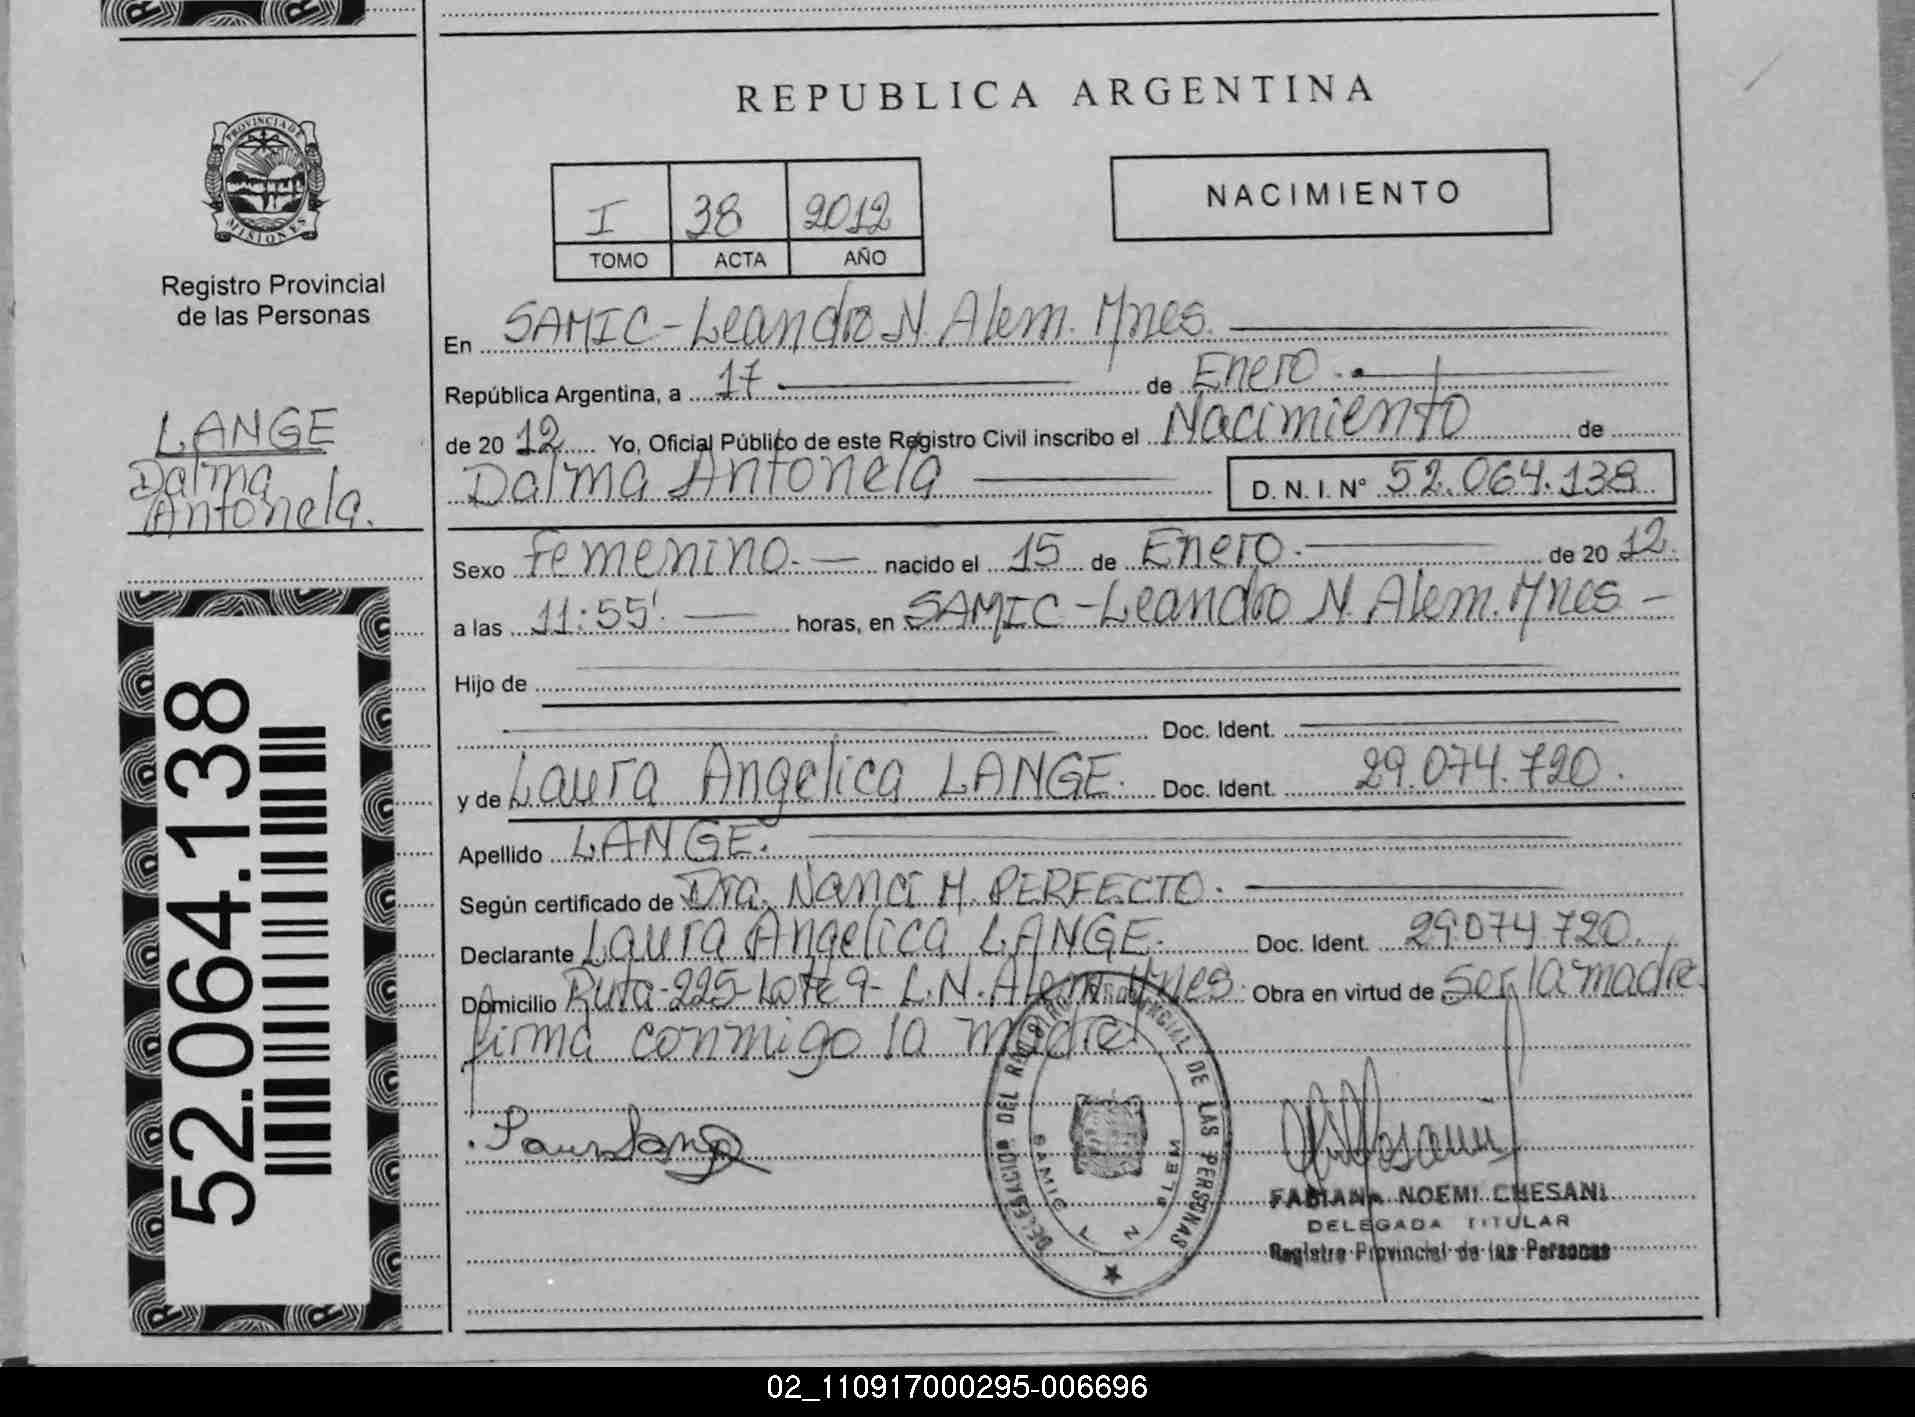 REPUBLICA ARGENTINA
PROVINCIA DE MISIONES
Registro Provincial
de las Personas
I 38 2012
TOMO ACTA AÑO
NACIMIENTO
LANGE
Dalma
Antonela.
52.064.138
En SAMIC-Leandro N. Alem. Mnes.
República Argentina, a 17 de Enero.
de 20 12 Yo, Oficial Público de este Registro Civil inscribo el Nacimiento de
Dalma Antonela D. N. I. N° 52.064.138
Sexo femenino.- nacido el 15 de Enero.- de 20 12.
a las 11:55'. horas, en SAMIC-Leandro N. Alem. Mnes-
Hijo de
Doc. Ident.
y de Laura Angelica LANGE. Doc. Ident. 29.074.720.
Apellido LANGE.
Según certificado de Dra. Nanci M. PERFECTO.
Declarante Laura Angelica LANGE. Doc. Ident. 29.074.720.
Domicilio Ruta-225-Lote 9- L.N. Alem Mnes. Obra en virtud de Ser la madre.
firma conmigo la madre
DELEGACION DEL REGISTRO PROVINCIAL DE LAS PERSONAS
SAMIC L N ALEM
FABIANA NOEMI CHESANI
DELEGADA TITULAR
Registro Provincial de las Personas
02_110917000295-006696